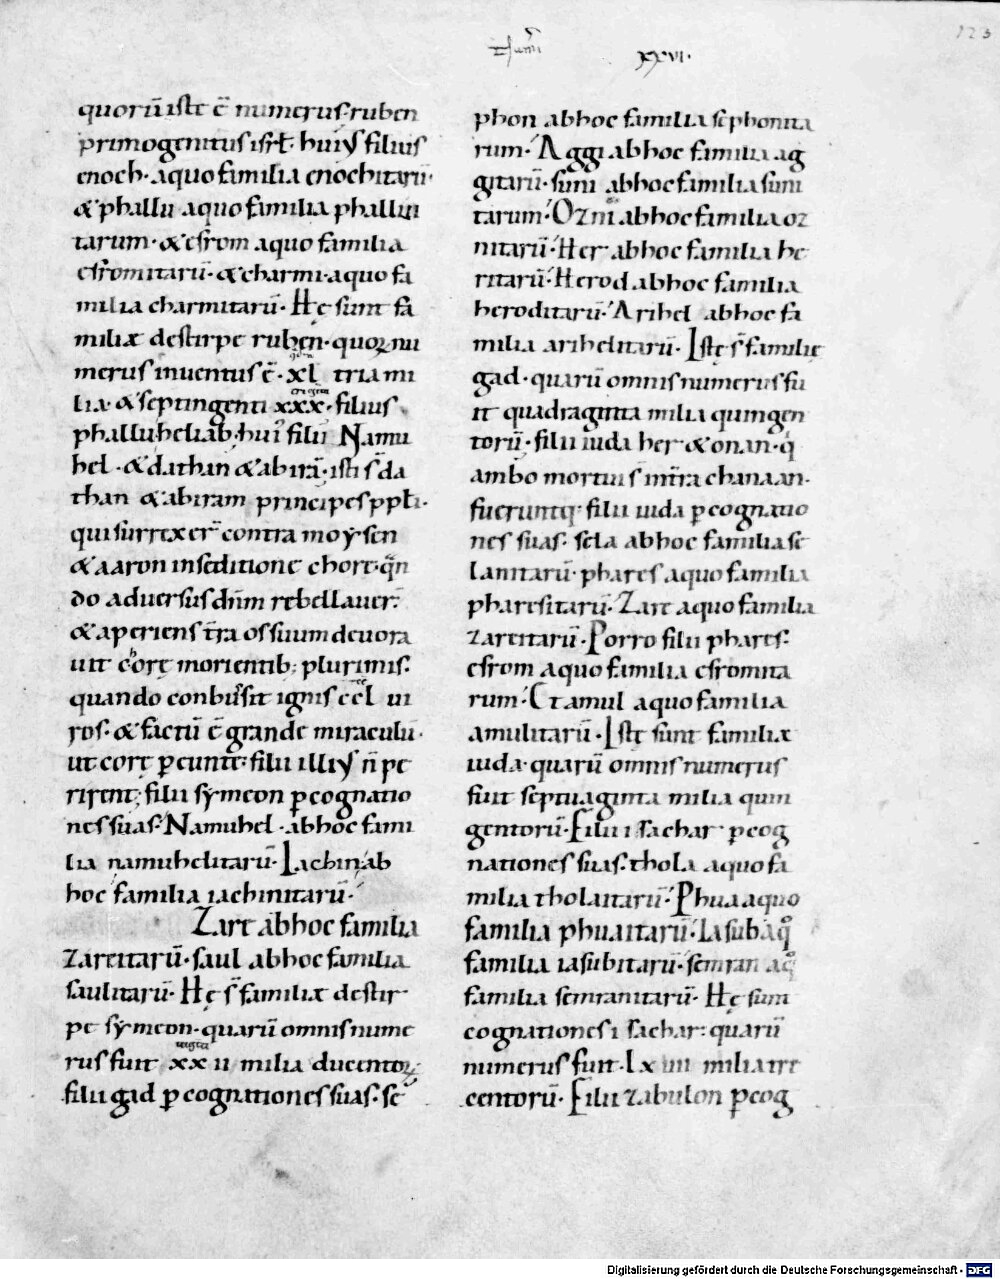 XXVI·
123
quorū iste ē numerus· ruben
primogenitus isrl̄· huiꝰ filius
enoch· a quo familia enochitarū·
& phallu a quo familia phallui
tarum· & esrom a quo familia
esromitarū· & charmi· a quo fa
milia charmitarū· Hę sunt fa
miliæ de stirpe ruben· quoꝝ nu
merus inuentus ē· XL tria mi
lia· & septingenti XXX· filius
phallu heliab· huiꝰ filii Namu
hel· & dathan & abirā· isti s̄ da
than & abiram principes ppl̄i·
qui surrexer̄ contra moysen
& aaron in seditione chore· qn̄
do aduersus dn̄m rebellauer̄·
& aperiens t̄ra os suum deuora
uit corę morientib; plurimis·
quando conbusit ignis ccl ui
ros· & factū ē grande miraculū·
ut corę pereunte· filii illiꝰ n̄ pe
rirent; filii symeon ꝑ cognatio
nes suas· Namuhel· ab hoc fami
lia namuhelitarū· Iachin ab
hoc familia iachinitarū·
Zare ab hoc familia
zareitarū· saul ab hoc familia
saulitarū· Hę s̄ familiæ de stir
pe symeon· quarū omnis nume
rus fuit XXII milia ducentoꝝ
filii gad ꝑ cognationes suas· se
phon ab hoc familia sephonita
rum· Aggi ab hoc familia ag
gitarū· suni ab hoc familia suni
tarum· Ozni ab hoc familia oz
nitarū· Her ab hoc familia he
ritarū· Herod ab hoc familia
heroditarū· Arihel ab hoc fa
milia arihelitarū· Istę s̄ familię
gad· quarū omnis numerus fu
it quadraginta milia quingen
torū· filii iuda her & onan· q̇
ambo mortui s̄ in t̄ra chanaan·
fueruntq· filii iuda ꝑ cognatio
nes suas· sela ab hoc familia se
lanitarū· phares a quo familia
pharesitarū· Zare a quo familia
zareitarū· Porro filii phares·
esrom a quo familia esromita
rum· Et amul a quo familia
amulitarū· Istę sunt familiæ
iuda· quarū omnis numerus
fuit septuaginta milia quin
gentorū· Filii isachar ꝑ cog
nationes suas· thola a quo fa
milia tholaitarū· Phua a quo
familia phuaitarū· Iasub a q̊
familia iasubitarū· semran a q̊
familia semranitarū· Hę sunt
cognationes isachar: quarū
numerus fuit· LXIIII milia tre
centorū· Filii zabulon ꝑ cog
Digitalisierung gefördert durch die Deutsche Forschungsgemeinschaft · DFG